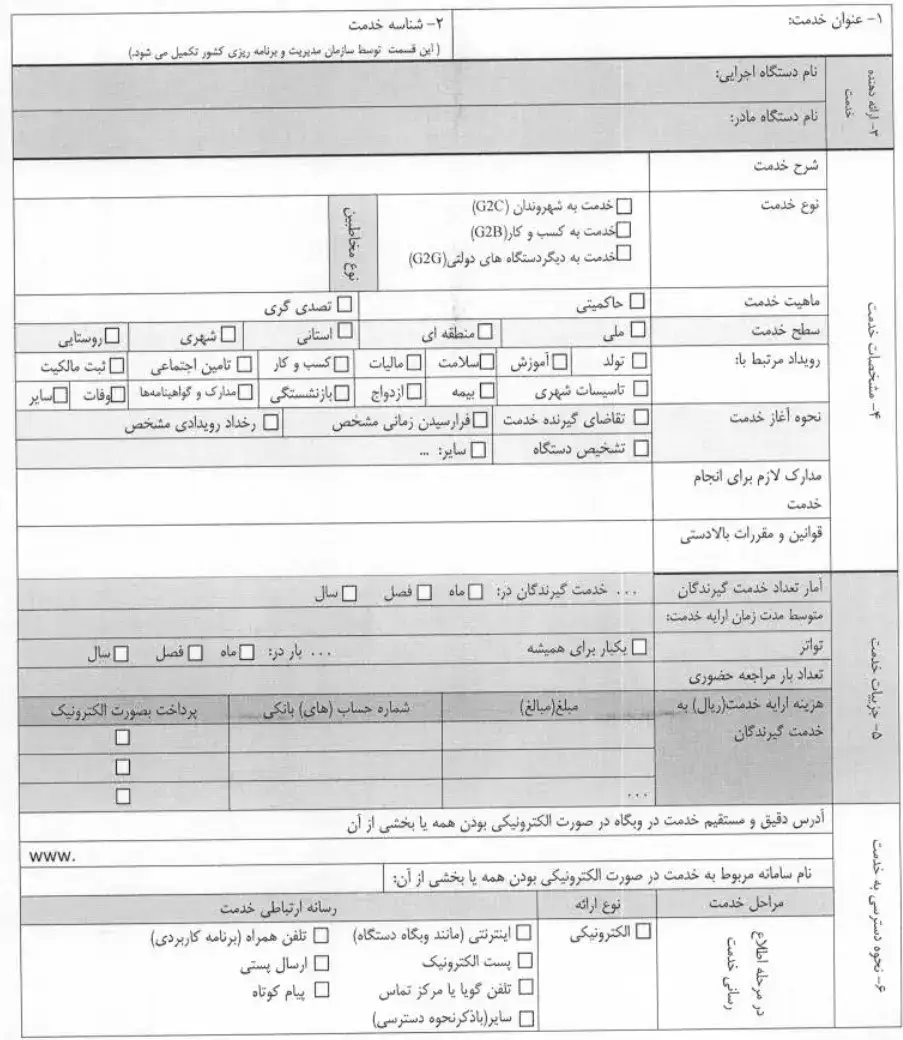 ۱- عنوان خدمت:
۲- شناسه خدمت
( این قسمت توسط سازمان مدیریت و برنامه ریزی کشور تکمیل می شود.)
۳- ارائه دهنده خدمت
نام دستگاه اجرایی:
نام دستگاه مادر:
۴- مشخصات خدمت
شرح خدمت
نوع خدمت
خدمت به شهروندان (G2C)
خدمت به کسب و کار(G2B)
خدمت به دیگردستگاه های دولتی(G2G)
نوع مخاطبین
ماهیت خدمت
حاکمیتی
تصدی گری
سطح خدمت
ملی
منطقه ای
استانی
شهری
روستایی
رویداد مرتبط با:
تولد
آموزش
سلامت
مالیات
کسب و کار
تامین اجتماعی
ثبت مالکیت
تاسیسات شهری
بیمه
ازدواج
بازنشستگی
مدارک و گواهینامه‌ها
وفات
سایر
نحوه آغاز خدمت
تقاضای گیرنده خدمت
فرارسیدن زمانی مشخص
رخداد رویدادی مشخص
تشخیص دستگاه
سایر: ...
مدارک لازم برای انجام
خدمت
قوانین و مقررات بالادستی
۵- جزییات خدمت
آمار تعداد خدمت گیرندگان
... خدمت گیرندگان در: ماه فصل سال
متوسط مدت زمان ارایه خدمت:
تواتر
یکبار برای همیشه
... بار در: ماه فصل سال
تعداد بار مراجعه حضوری
هزینه ارایه خدمت(ریال) به
خدمت گیرندگان
مبلغ(مبالغ)
شماره حساب (های) بانکی
پرداخت بصورت الکترونیک
...
۶- نحوه دسترسی به خدمت
آدرس دقیق و مستقیم خدمت در وبگاه در صورت الکترونیکی بودن همه یا بخشی از آن
www.
نام سامانه مربوط به خدمت در صورت الکترونیکی بودن همه یا بخشی از آن:
مراحل خدمت
نوع ارائه
رسانه ارتباطی خدمت
در مرحله اطلاع
رسانی خدمت
الکترونیکی
اینترنتی (مانند وبگاه دستگاه)
تلفن همراه (برنامه کاربردی)
پست الکترونیک
ارسال پستی
تلفن گویا یا مرکز تماس
پیام کوتاه
سایر(باذکرنحوه دسترسی)